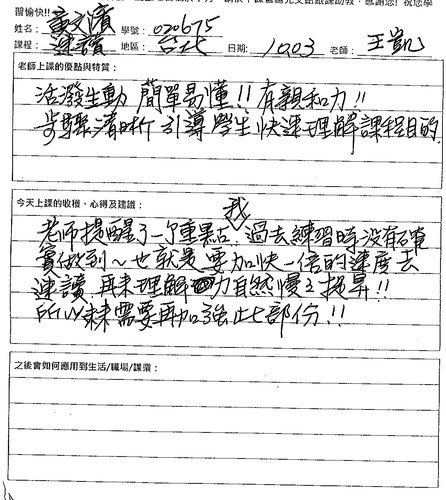 習愉快!!
姓名： 黃文濱 學號： 020675
課程： 速讀 地區： 台北 日期： 1003 老師： 王凱
老師上課的優點與特質：
活潑生動 簡單易懂!! 有親和力!!
步驟清晰 引導學生快速理解課程目的
今天上課的收穫、心得及建議：
老師提醒了一個重點，我過去練習時沒有確
實做到～也就是要加快一倍的速度去
速讀，再來理解力自然慢慢提昇!!
所以未來需要再加強此部份!!
之後會如何應用到生活/職場/課業：